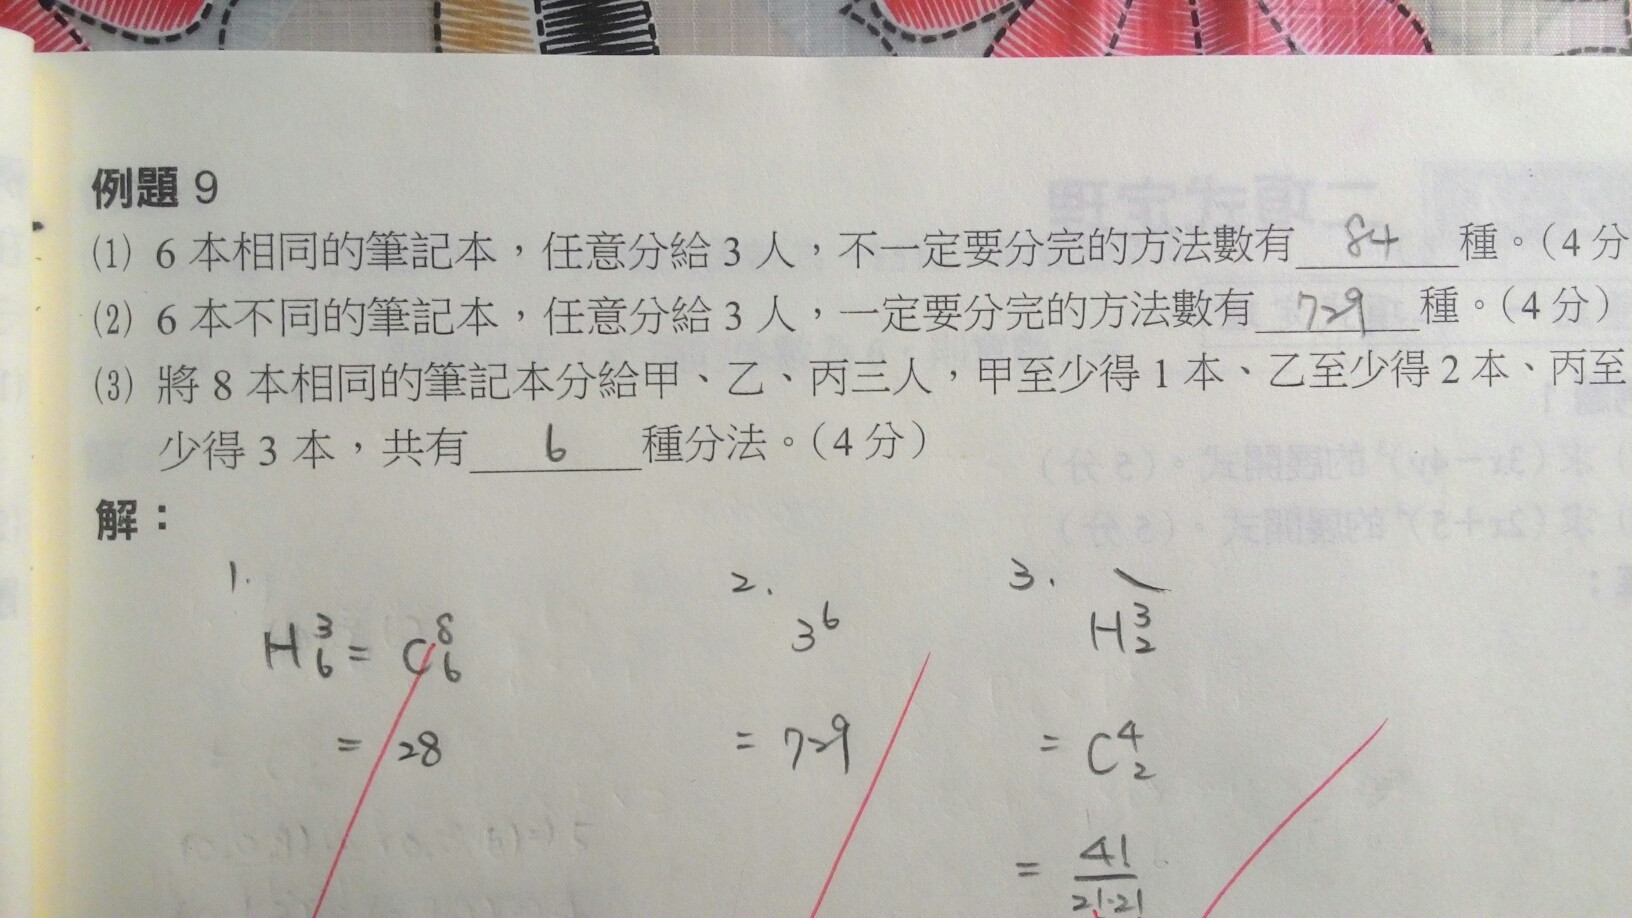 例題 9
(1) 6 本相同的筆記本，任意分給 3 人，不一定要分完的方法數有 84 種。（4 分
(2) 6 本不同的筆記本，任意分給 3 人，一定要分完的方法數有 729 種。（4 分）
(3) 將 8 本相同的筆記本分給甲、乙、丙三人，甲至少得 1 本、乙至少得 2 本、丙至
少得 3 本，共有 6 種分法。（4 分）
解：
1. 2. 3.
H³₆ = C⁸₆ 3⁶ H³₂
= 28 = 729 = C⁴₂
= 4!/2!·2!